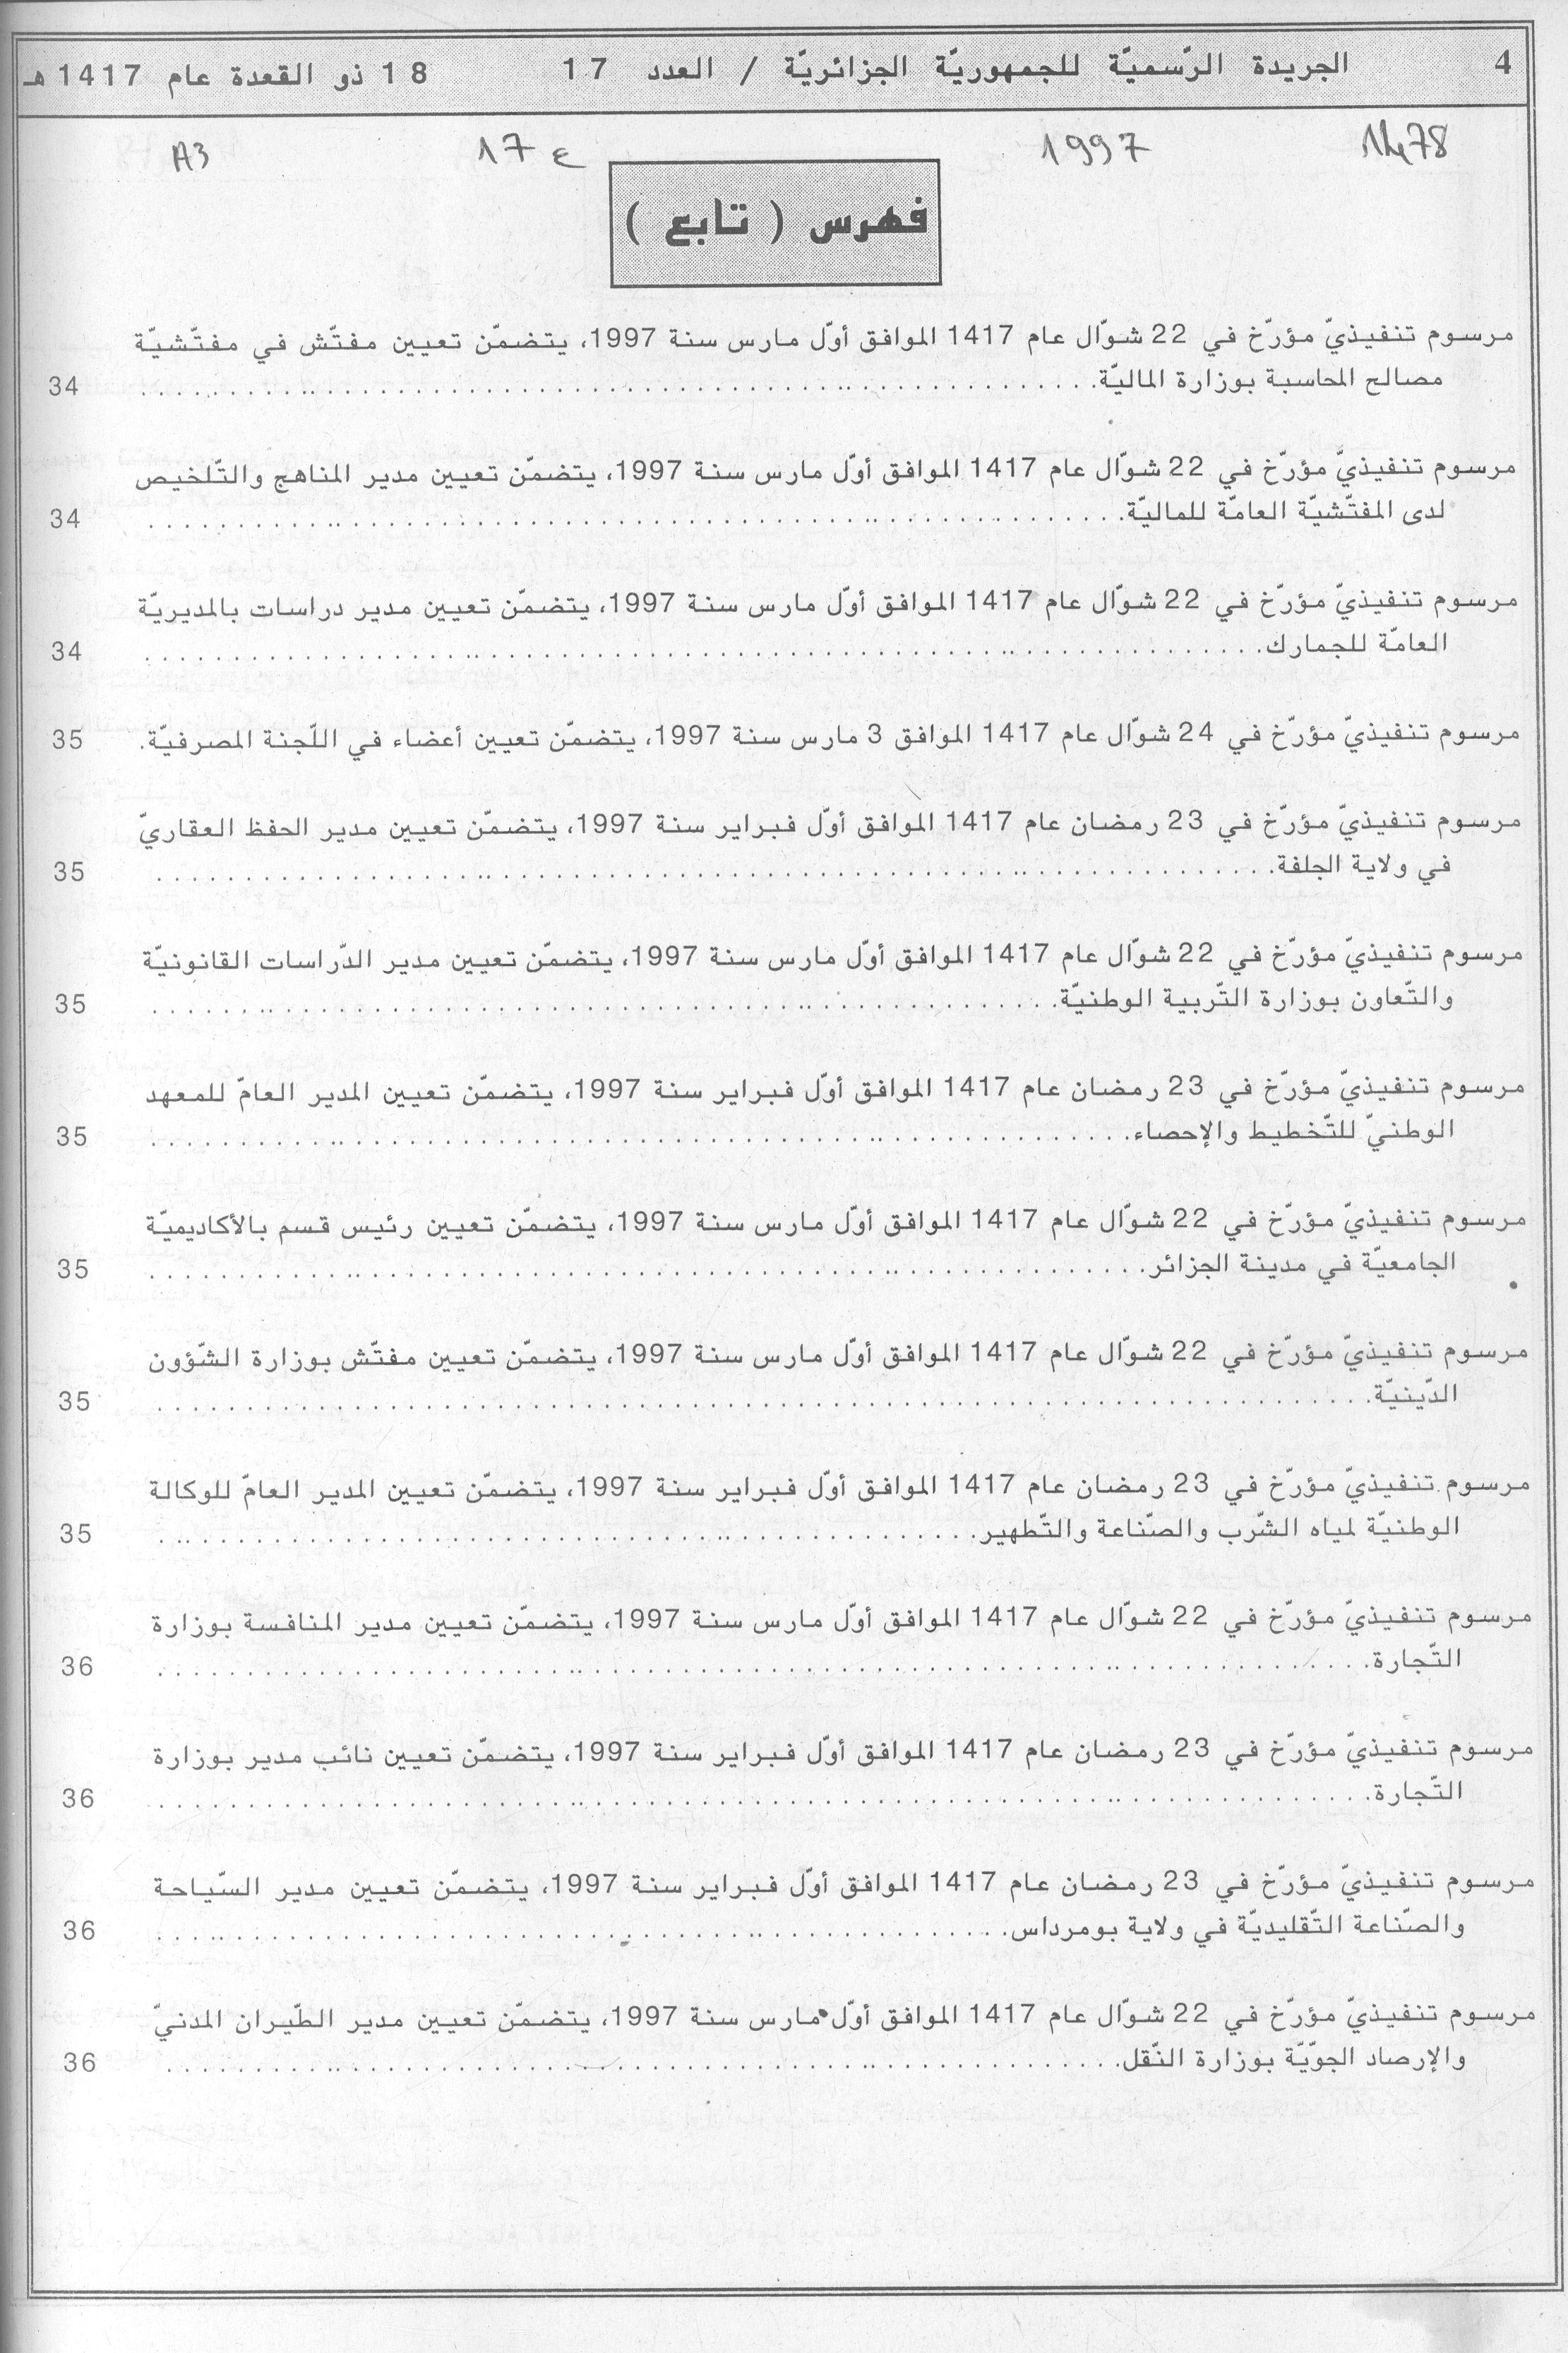 4 الجريدة الرّسميّة للجمهوريّة الجزائريّة / العدد 17 18 ذو القعدة عام 1417 هـ
1478 1997 ع 17 A3
فهرس ( تابع )
مرسوم تنفيذيّ مؤرّخ في 22 شوّال عام 1417 الموافق أوّل مارس سنة 1997، يتضمّن تعيين مفتّش في مفتّشيّة
مصالح المحاسبة بوزارة الماليّة. 34
مرسوم تنفيذيّ مؤرّخ في 22 شوّال عام 1417 الموافق أوّل مارس سنة 1997، يتضمّن تعيين مدير المناهج والتّلخيص
لدى المفتّشيّة العامّة للماليّة. 34
مرسوم تنفيذيّ مؤرّخ في 22 شوّال عام 1417 الموافق أوّل مارس سنة 1997، يتضمّن تعيين مدير دراسات بالمديريّة
العامّة للجمارك. 34
مرسوم تنفيذيّ مؤرّخ في 24 شوّال عام 1417 الموافق 3 مارس سنة 1997، يتضمّن تعيين أعضاء في اللّجنة المصرفيّة. 35
مرسوم تنفيذيّ مؤرّخ في 23 رمضان عام 1417 الموافق أوّل فبراير سنة 1997، يتضمّن تعيين مدير الحفظ العقاريّ
في ولاية الجلفة. 35
مرسوم تنفيذيّ مؤرّخ في 22 شوّال عام 1417 الموافق أوّل مارس سنة 1997، يتضمّن تعيين مدير الدّراسات القانونيّة
والتّعاون بوزارة التّربية الوطنيّة. 35
مرسوم تنفيذيّ مؤرّخ في 23 رمضان عام 1417 الموافق أوّل فبراير سنة 1997، يتضمّن تعيين المدير العامّ للمعهد
الوطنيّ للتّخطيط والإحصاء. 35
مرسوم تنفيذيّ مؤرّخ في 22 شوّال عام 1417 الموافق أوّل مارس سنة 1997، يتضمّن تعيين رئيس قسم بالأكاديميّة
الجامعيّة في مدينة الجزائر. 35
مرسوم تنفيذيّ مؤرّخ في 22 شوّال عام 1417 الموافق أوّل مارس سنة 1997، يتضمّن تعيين مفتّش بوزارة الشّؤون
الدّينيّة. 35
مرسوم تنفيذيّ مؤرّخ في 23 رمضان عام 1417 الموافق أوّل فبراير سنة 1997، يتضمّن تعيين المدير العامّ للوكالة
الوطنيّة لمياه الشّرب والصّناعة والتّطهير. 35
مرسوم تنفيذيّ مؤرّخ في 22 شوّال عام 1417 الموافق أوّل مارس سنة 1997، يتضمّن تعيين مدير المنافسة بوزارة
التّجارة. 36
مرسوم تنفيذيّ مؤرّخ في 23 رمضان عام 1417 الموافق أوّل فبراير سنة 1997، يتضمّن تعيين نائب مدير بوزارة
التّجارة. 36
مرسوم تنفيذيّ مؤرّخ في 23 رمضان عام 1417 الموافق أوّل فبراير سنة 1997، يتضمّن تعيين مدير السّياحة
والصّناعة التّقليديّة في ولاية بومرداس. 36
مرسوم تنفيذيّ مؤرّخ في 22 شوّال عام 1417 الموافق أوّل مارس سنة 1997، يتضمّن تعيين مدير الطّيران المدنيّ
والإرصاد الجوّيّة بوزارة النّقل. 36